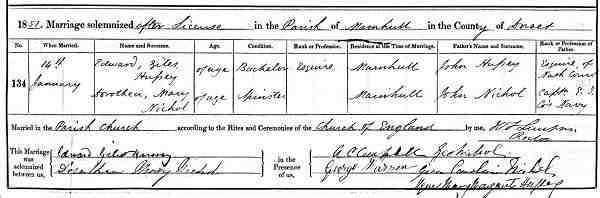 1851. Marriage solemnized after License in the Parish of Marnhull in the County of Dorset
No. When Married. Name and Surname. Age. Condition. Rank or Profession. Residence at the Time of Marriage. Father's Name and Surname. Rank or Profession of Father.
134 14th January Edward, Giles Hussey of age Bachelor Esquire Marnhull John Hussey Esquire, of Nash Court
Dorothea, Mary Nichol of age Spinster Marnhull John Nichol Captn E. I. Co's Navy
Married in the Parish Church according to the Rites and Ceremonies of the Church of England by me, Rector
This Marriage was solemnized between us, Edward Giles Hussey
Dorothea Mary Nichol
in the Presence of us, A C Campbell Geo Nichol
George Nichol
Mary Hussey